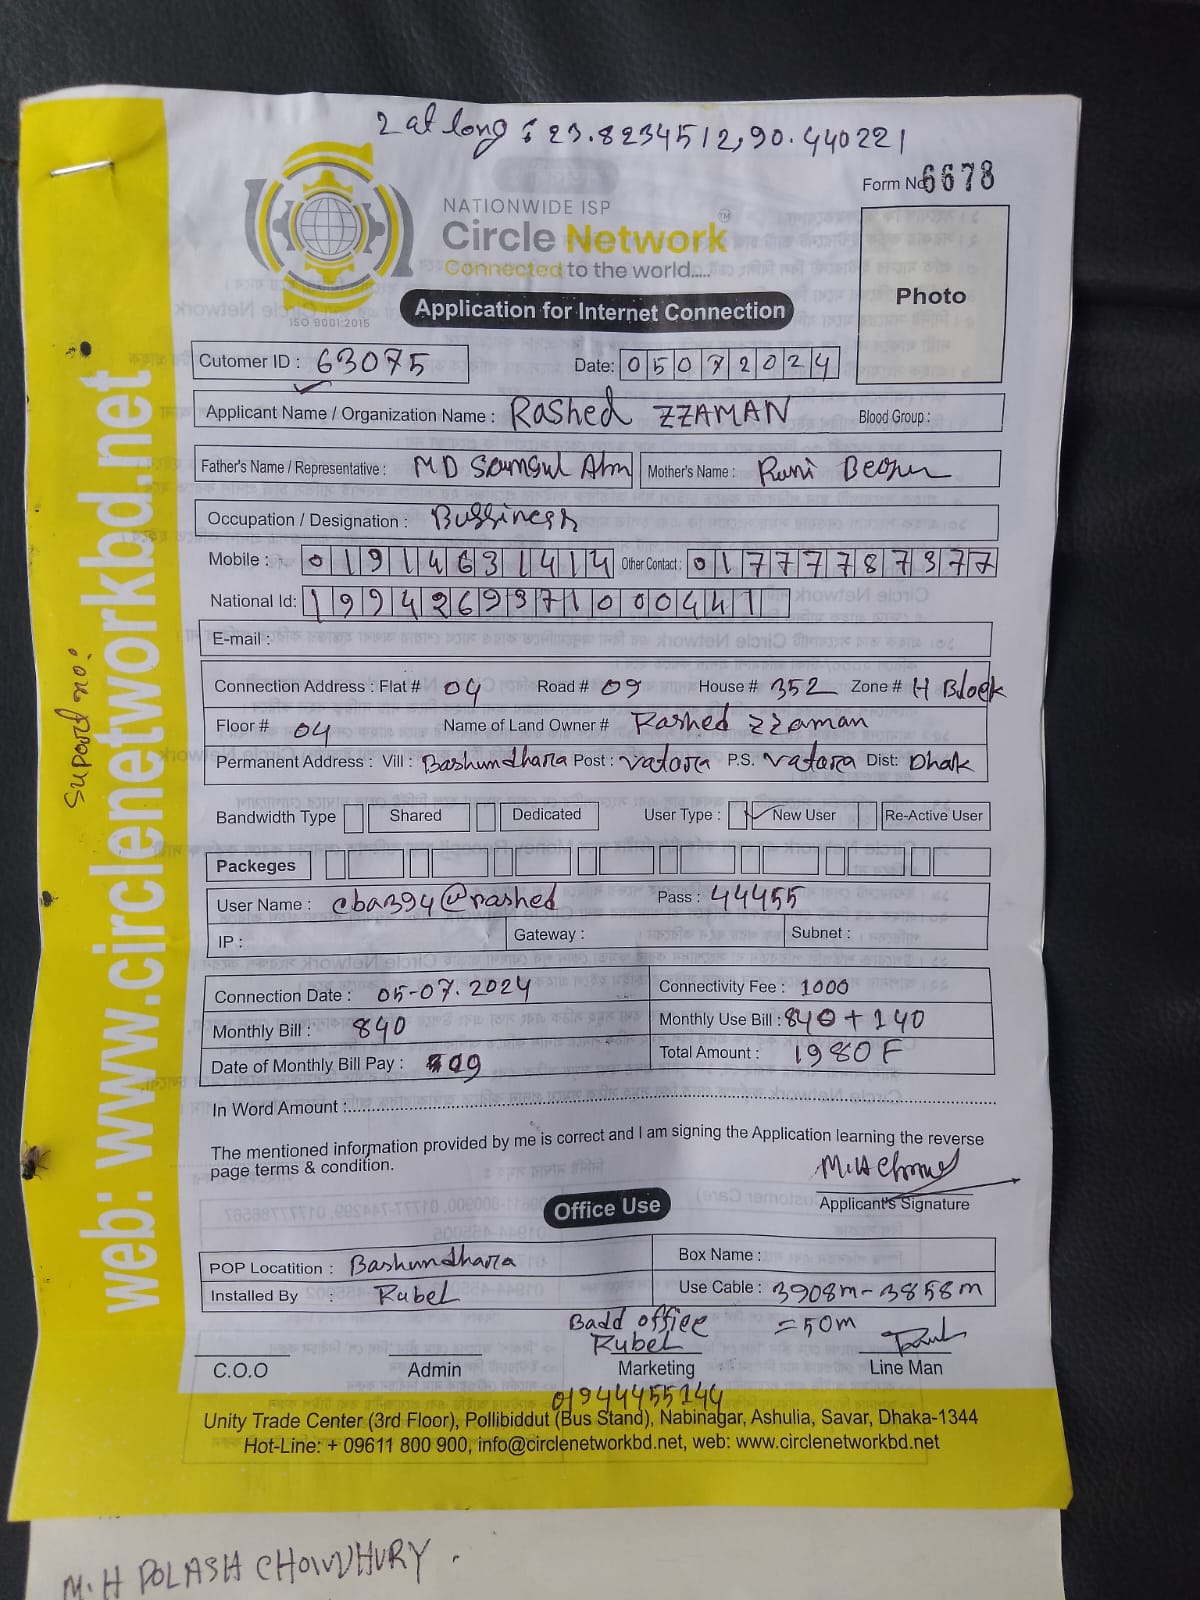 2 at long : 23.8234512,90.440221
Form No 6678
NATIONWIDE ISP
Circle Network TM
Connected to the world.....
ISO 9001:2015
Application for Internet Connection
Photo
Cutomer ID : 63075 Date: 05072024
Applicant Name / Organization Name : Rashed ZZAMAN Blood Group :
Father's Name / Representative : MD Samsul Alm Mother's Name : Runi Begum
Occupation / Designation : Bussiness
Mobile : 01914631414 Other Contact : 01777787977
National Id: 19942693710000441
E-mail :
Connection Address : Flat # 04 Road # 09 House # 352 Zone # H Block
Floor # 04 Name of Land Owner # Rashed zzaman
Permanent Address : Vill : Bashundhara Post : Vatara P.S. Vatara Dist: Dhak
Bandwidth Type Shared Dedicated User Type : New User Re-Active User
Packeges
User Name : cba394@rashed Pass : 44455
IP : Gateway : Subnet :
Connection Date : 05-07.2024 Connectivity Fee : 1000
Monthly Bill : 840 Monthly Use Bill : 840 + 140
Date of Monthly Bill Pay : 09 Total Amount : 1980 F
In Word Amount :
The mentioned information provided by me is correct and I am signing the Application learning the reverse
page terms & condition.
M.H Chow
Applicant's Signature
Office Use
POP Locatition : Bashundhara Box Name :
Installed By : Rubel Use Cable : 3908m-3858m
Badd office =50m
Rubel
C.O.O Admin Marketing Line Man
01944455144
Unity Trade Center (3rd Floor), Pollibiddut (Bus Stand), Nabinagar, Ashulia, Savar, Dhaka-1344
Hot-Line: + 09611 800 900, info@circlenetworkbd.net, web: www.circlenetworkbd.net
web: www.circlenetworkbd.net
Support no:
M.H POLASH CHOWDHURY.